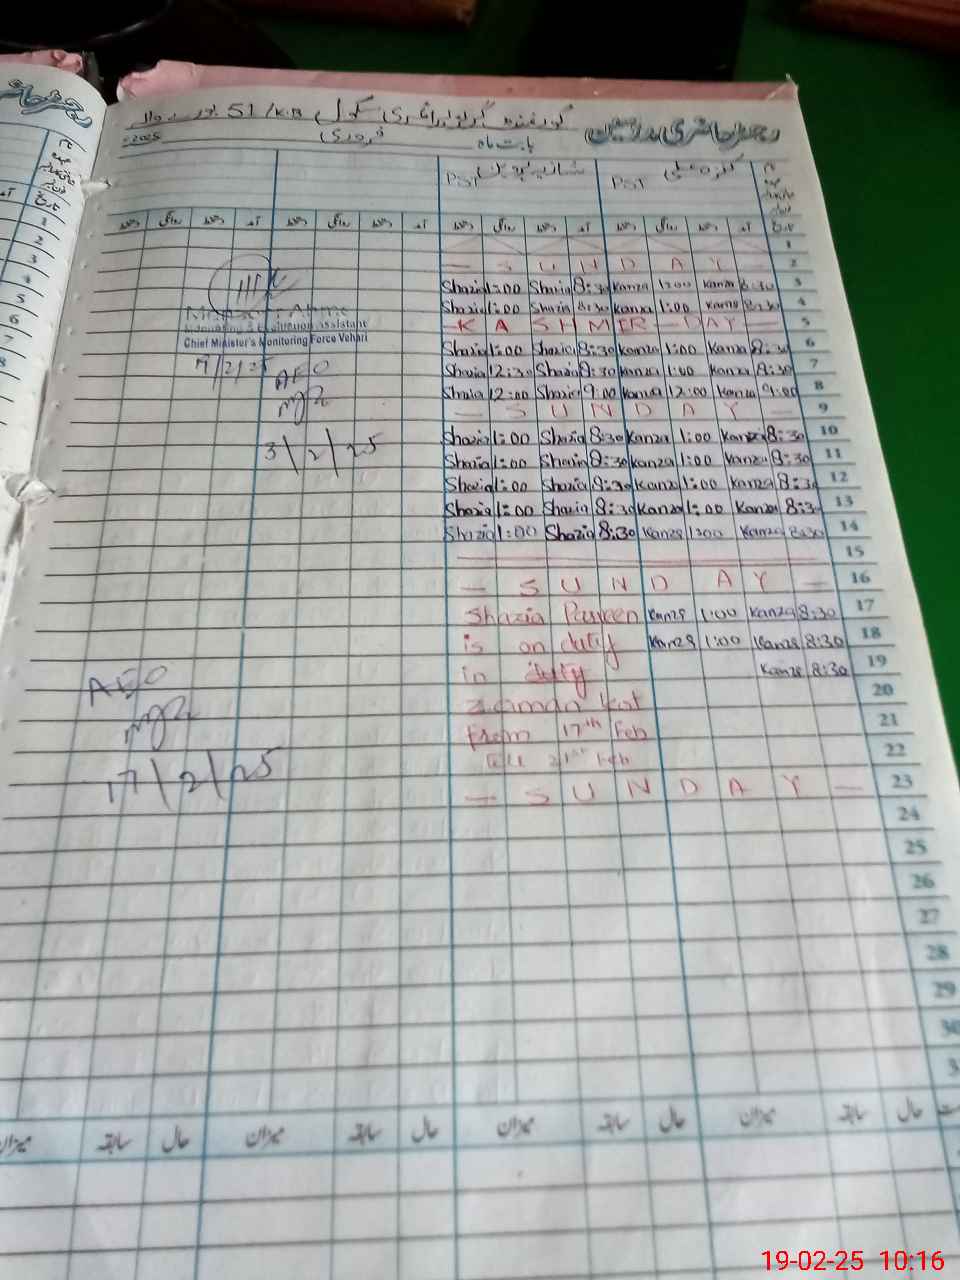 رجسٹر حاضری مدرسین گورنمنٹ گرلز پرائمری سکول 51/K.B
بابت ماہ فروری 2025
PST شازیہ پروین PST کنزہ علی
دستخط روانگی دستخط آمد دستخط روانگی دستخط آمد دستخط روانگی دستخط آمد دستخط روانگی دستخط آمد تاریخ
1
— S U N D A Y — 2
Shazia 1:00 Shazia 8:30 Kanza 1:00 Kanza 8:30 3
Shazia 1:00 Shazia 8:30 Kanza 1:00 Kanza 8:30 4
— K A S H M I R — D A Y — 5
Shazia 1:00 Shazia 8:30 Kanza 1:00 Kanza 8:30 6
Shazia 12:30 Shazia 8:30 Kanza 1:00 Kanza 8:30 7
Shazia 12:00 Shazia 9:00 Kanza 12:00 Kanza 9:00 8
— S U N D A Y — 9
Shazia 1:00 Shazia 8:30 Kanza 1:00 Kanza 8:30 10
Shazia 1:00 Shazia 8:30 Kanza 1:00 Kanza 8:30 11
Shazia 1:00 Shazia 8:30 Kanza 1:00 Kanza 8:30 12
Shazia 1:00 Shazia 8:30 Kanza 1:00 Kanza 8:30 13
Shazia 1:00 Shazia 8:30 Kanza 1:00 Kanza 8:30 14
15
— S U N D A Y — 16
Shazia Parveen Kanza 1:00 Kanza 8:30 17
is on duty Kanza 1:00 Kanza 8:30 18
in duty Kanza 8:30 19
zaman kot 20
from 17th Feb 21
till 21st Feb 22
— S U N D A Y — 23
24
25
26
27
28
29
30
3
Monitoring & Evaluation Assistant
Chief Minister's Monitoring Force Vehari
7/2/25
AEO
3/2/25
AEO
17/2/25
میزان سابقہ حال میزان سابقہ حال میزان سابقہ حال میزان سابقہ حال
1
2
3
4
5
6
7
8
19-02-25 10:16